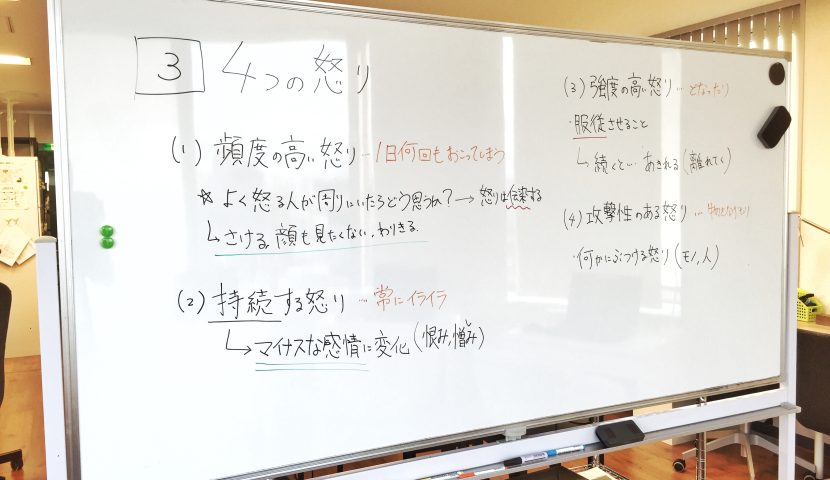 3 4つの怒り
(1) 頻度の高い怒り…1日何回もおこってしまう
☆よく怒る人が周りにいたらどう思うね?→怒りは伝染する
↳さける、顔も見たくない、わりきる
(2) 持続する怒り…常にイライラ
↳マイナスな感情に変化(恨み,憎しみ)
(3) 強度の高い怒り…どなったり
・服従させること
↳続くと…あきれる(離れてく)
(4) 攻撃性のある怒り…
・何かにぶつける怒り(モノ,人)